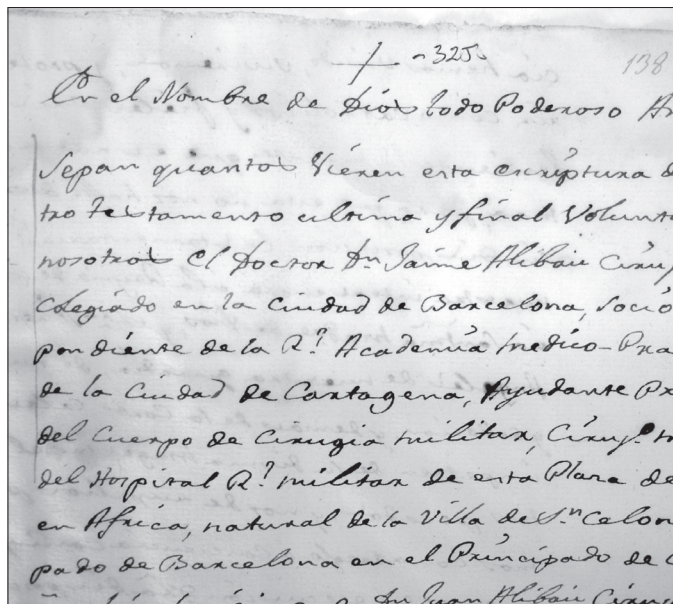 -325
138
En el Nombre de Dios todo Poderoso
Sepan quantos Vieren esta escriptura
tro testamento ultima y final Volunt
nosotros el Doctor Dn Jaime Alibau Ciruj
Colegiado en la Ciudad de Barcelona, Socio
pondiente de la Rl Academia Medico-Pra
de la Ciudad de Cartagena, Ayudante Pr
del Cuerpo de Cirugia militar, Ciruj.
del Hospital Rl militar de esta Plaza de
en Africa, natural de la Villa de Sn Celon
pado de Barcelona en el Principado de C
Dn Juan Alibau Ciruj